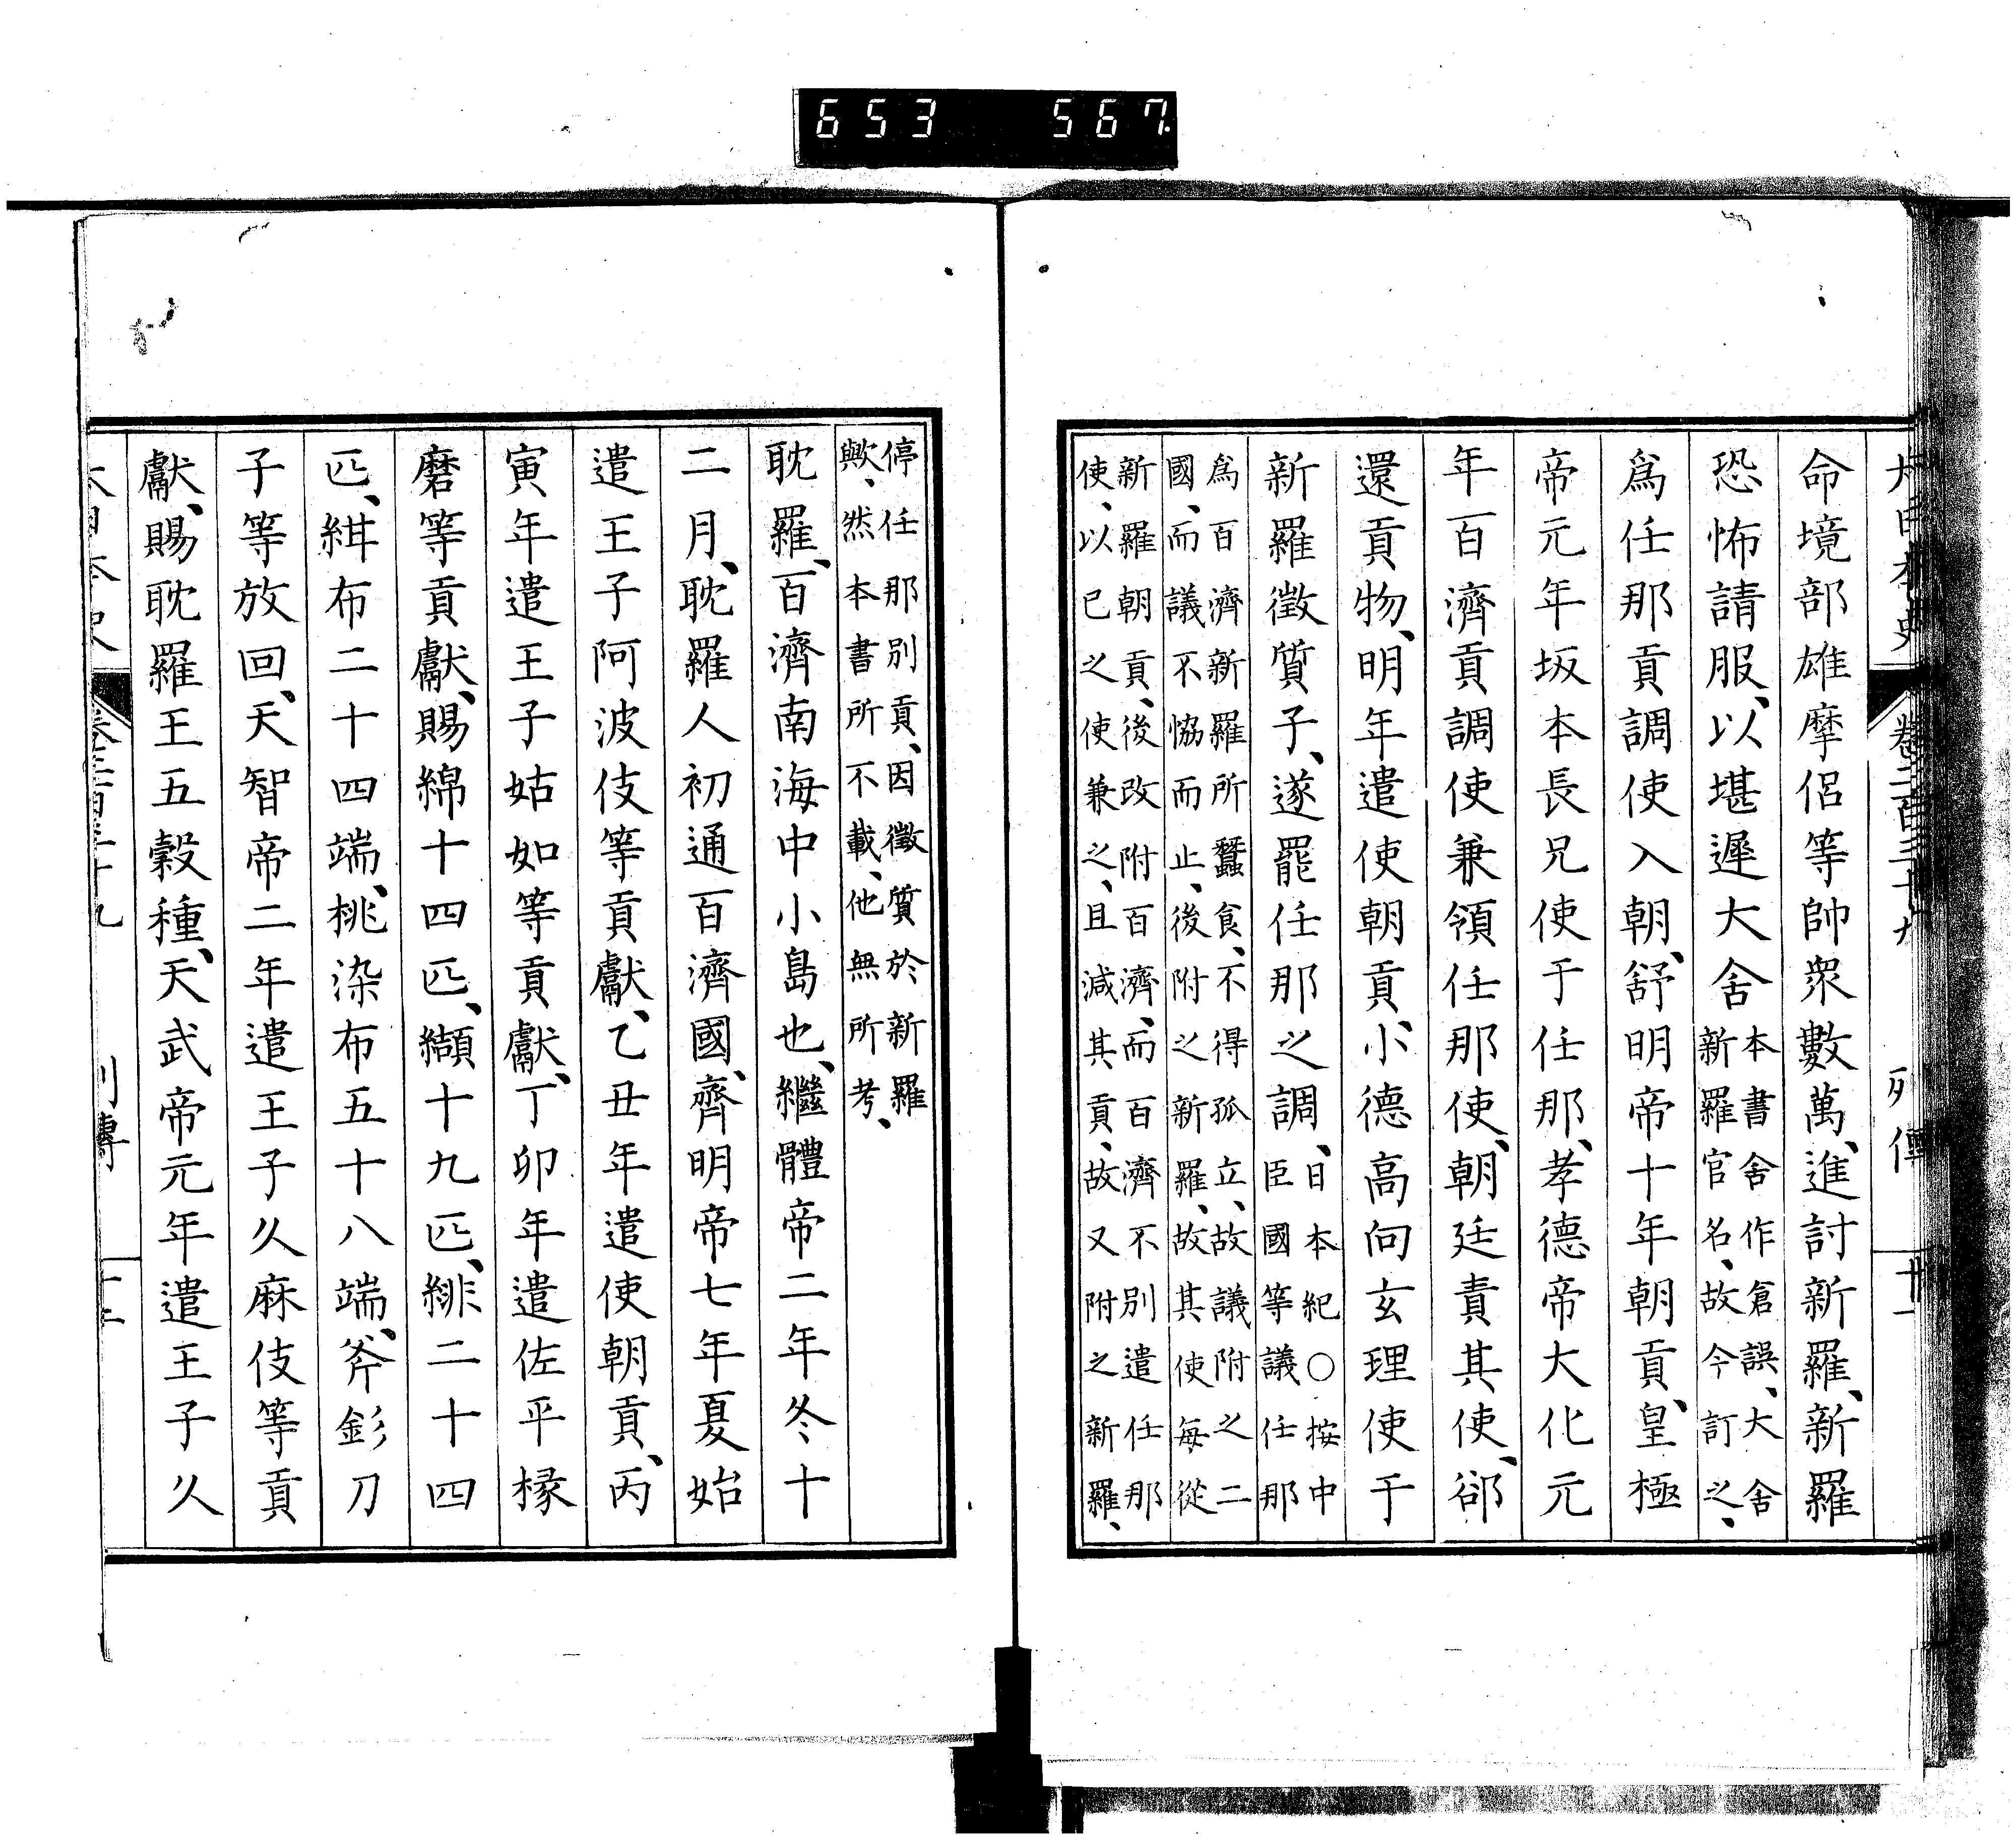 653 567.
大日本史 卷二百三十九 列傳 廿一
命境部雄摩侶等帥衆數萬、進討新羅、新羅
恐怖請服、以堪遲大舍本書舍作倉誤、大舍新羅官名、故今訂之、
爲任那貢調使入朝、舒明帝十年朝貢、皇極
帝元年坂本長兄使于任那、孝德帝大化元
年百濟貢調使兼領任那使、朝廷責其使、郤
還貢物、明年遣使朝貢、小德高向玄理使于
新羅徵質子、遂罷任那之調、日本紀○按中臣國等議任那
爲百濟新羅所蠶食、不得孤立、故議附之二國、而議不恊而止、後附之新羅、故其使每從
新羅朝貢、後改附百濟、而百濟不別遣任那使、以已之使兼之、且減其貢、故又附之新羅、
停任那別貢、因徵質於新羅歟、然本書所不載、他無所考、
耽羅、百濟南海中小島也、繼體帝二年冬十
二月、耽羅人初通百濟國、齊明帝七年夏始
遣王子阿波伎等貢獻、乙丑年遣使朝貢、丙
寅年遣王子姑如等貢獻、丁卯年遣佐平椽
磨等貢獻、賜綿十四匹、纈十九匹、緋二十四
匹、紺布二十四端、桃染布五十八端、斧釤刀
子等放回、天智帝二年遣王子久麻伎等貢
獻、賜耽羅王五穀種、天武帝元年遣王子久
大日本史 卷二百三十九 列傳